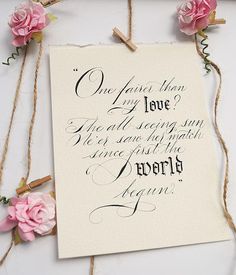 "One fairer than
my love?
The all seeing sun
Ne'er saw her match
since first the
world
begun."